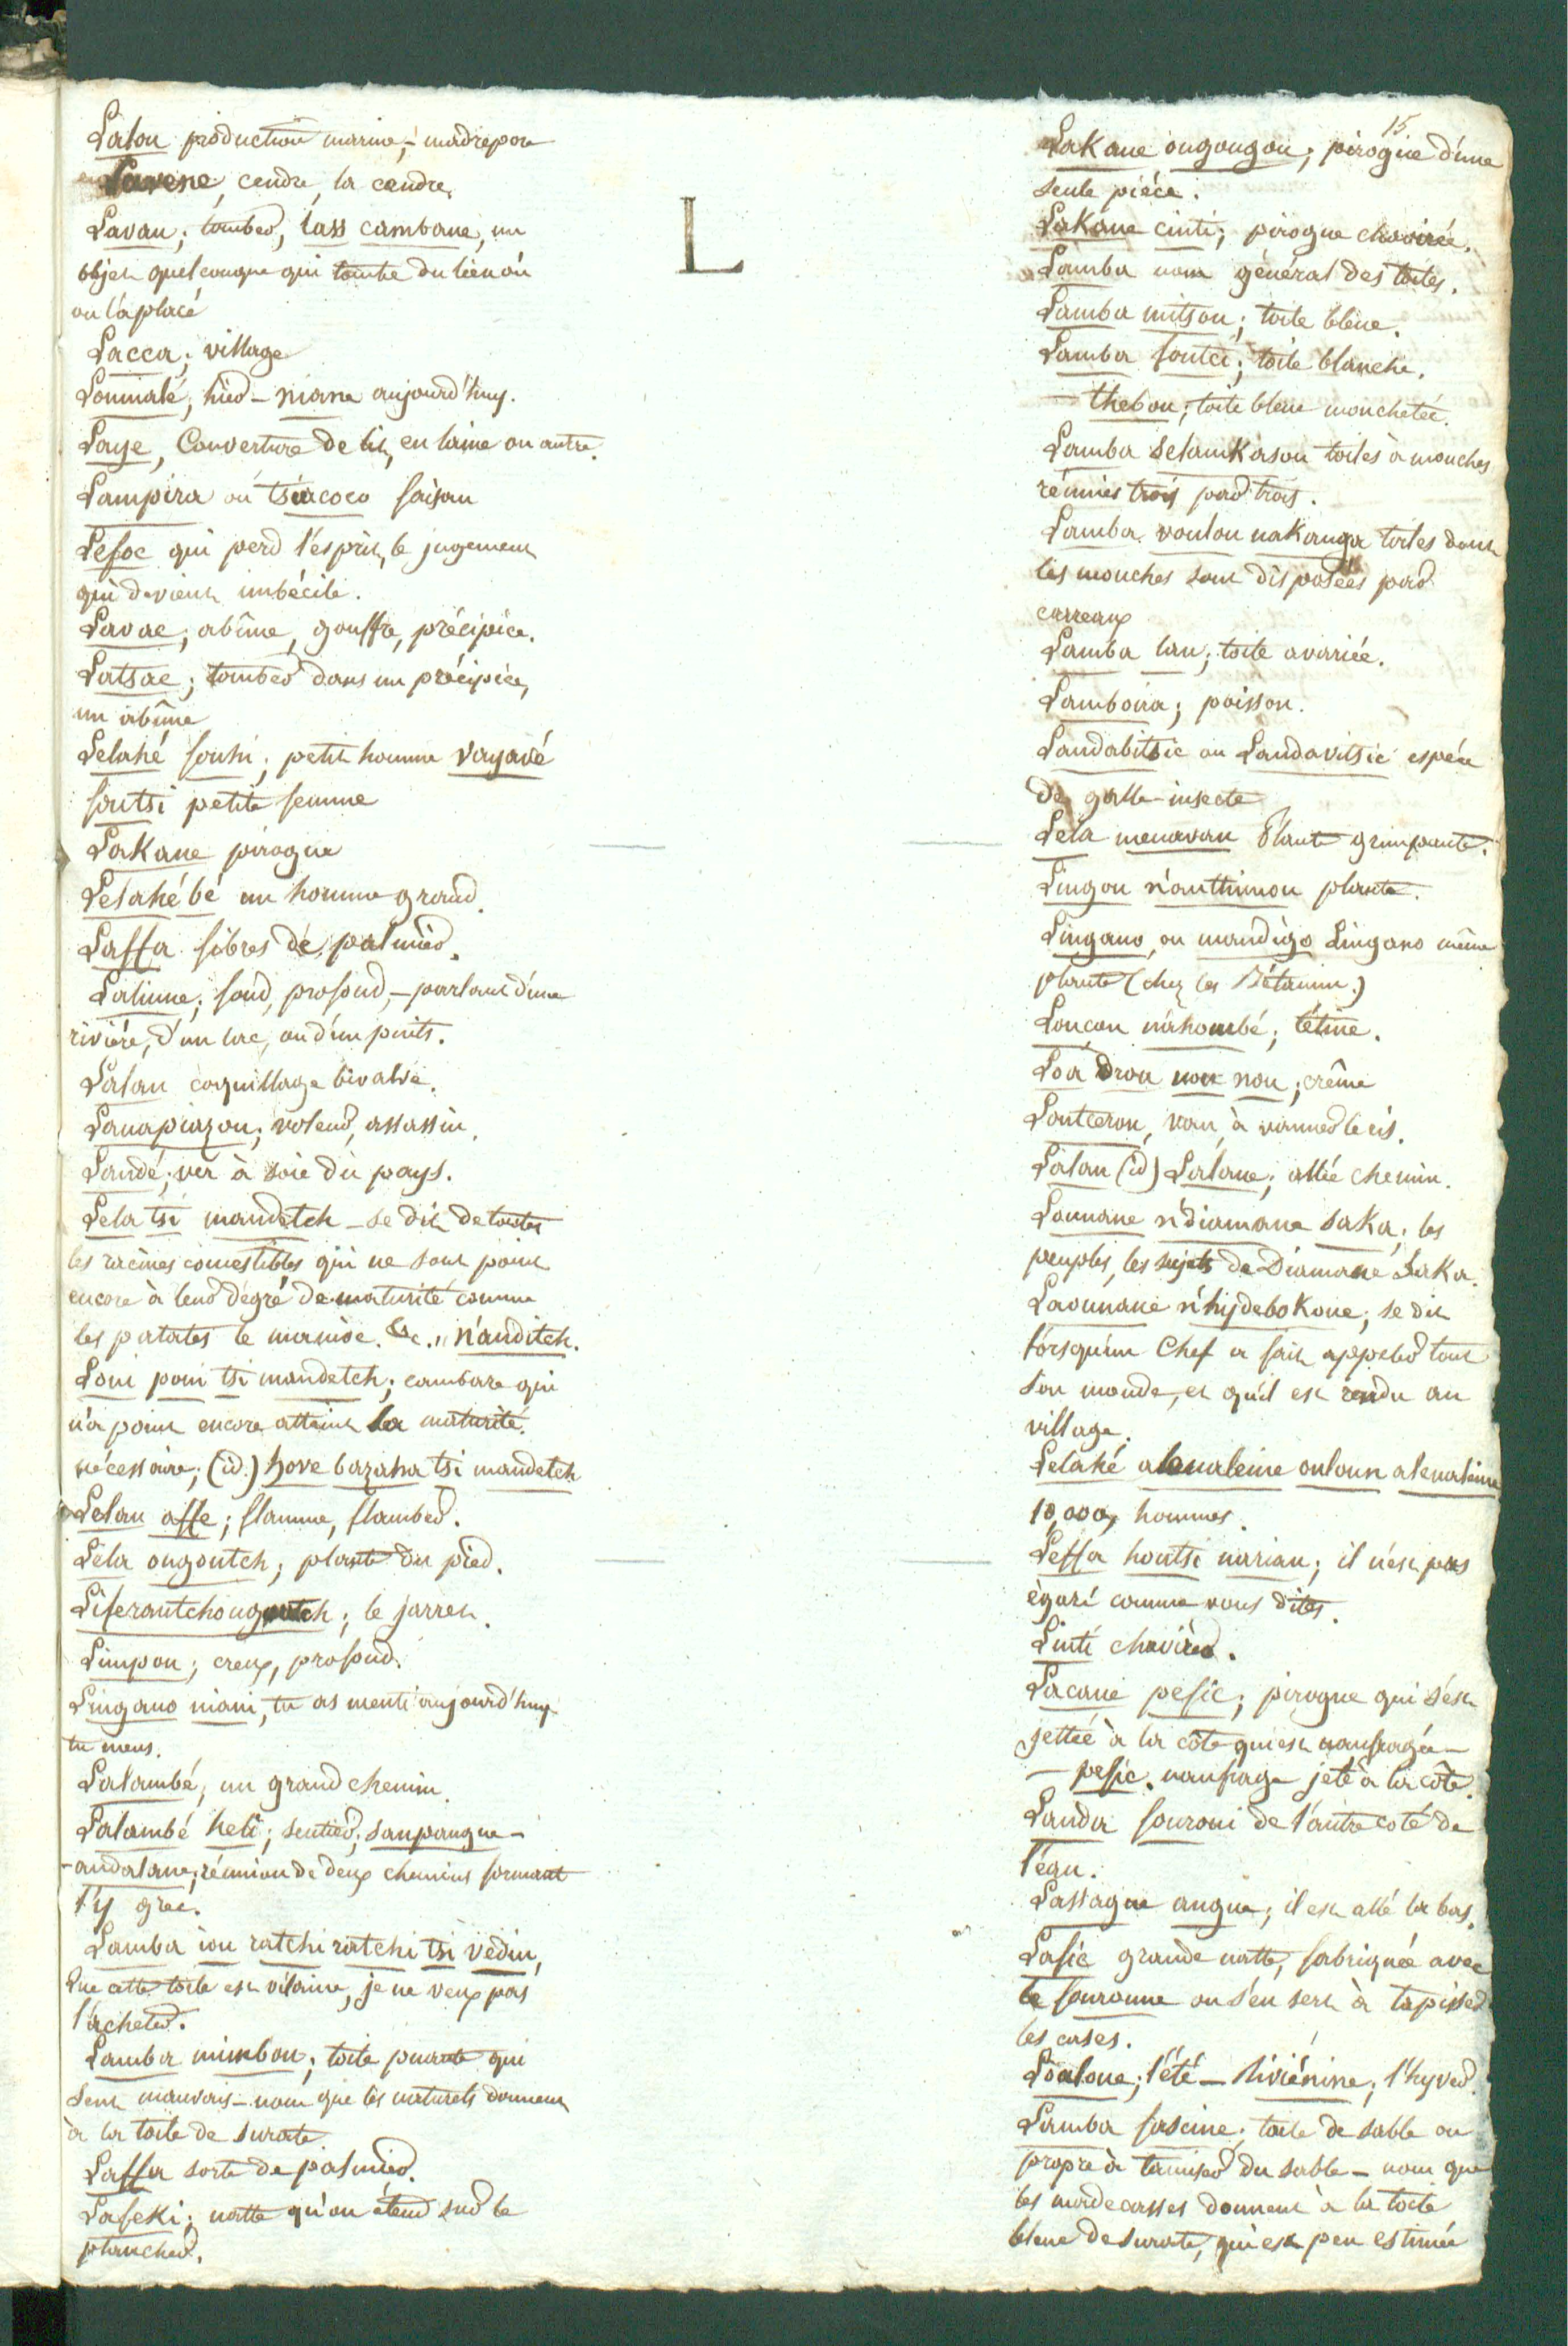 Lalou production marine, – madrepore
Lavene, cendre, la cendre,
Lavau; tomber, lass cambane, un
objet quelconque qui tombe du lieu où
on l'a placé
Lacca; village
Loumalé; hier – niane aujourd'huy.
Laye, Couverture de lit, en laine ou autre.
Lampira ou tsiacoco faisan
Lefoe qui perd l'esprit, le jugement
qui devient imbécile.
Lavac; abîme, gouffre, précipice.
Latsac; tomber dans un précipice,
un abîme
Lelahé fouhi; petit homme vayavé
foutsi petite femme
Lakane pirogue
Lelahé bé un homme grand.
Laffa fibres de palmier.
Lalinne; fond, profond, – parlant d'une
rivière, d'un lac, ou d'un puits.
Lalau coquillage bivalve.
Lanapiazou; voleur, assassin.
Landé; ver à soie du pays.
Lela tsi mandetch – se dit de toutes
les racines comestibles qui ne sont point
encore à leur dégré de maturité comme
les patates le manioc. &c. " n'anditch.
Loui poui tsi mandetch; cambare qui
n'a point encore atteint la maturité.
nécessaire; (id.) hove bazaha tsi mandetch
Lelau affe; flamme, flamber.
Léla ongoutch; plante du pied.
Liferantchougoutch; le jarret.
Limpou; creux, profond.
Lingano niani, tu as menti aujourd'huy
tu mens.
Lalambé; un grand chemin.
Lalambé heli; sentier; sanpangue –
– andalane; réunion de deux chemins formant
l'y grec.
Lamba iou ratchi ratchi tsi vedin,
Que cette toile est vilaine, je ne veux pas
l'acheter.
Lamba mimbou; toile puante qui
sent mauvais – nom que les naturels donnent
à la toile de surate.
Laffa sorte de palmier.
Lafeki; natte qu'on étend sur le
plancher.
L
15
Lakane ougougou; pirogue d'une
seule pièce.
Lakane cinti; pirogue chavirée.
Lamba nom général des toiles.
Lamba mitsou; toile bleue.
Lamba foutci; toile blanche.
– thebou; toile bleue mouchetée.
Lamba selamkasou toiles à mouches
réunies trois par trois.
Lamba voulou nakanga toiles dont
les mouches sont disposées par
carreaux
Lamba lau; toile avariée.
Lamboira; poisson.
Landabitsic ou Landavitsic espéce
de galle-insecte
Lela menavau Plante grimpante.
Lingou n'authimou plante.
Lingano, ou mandigo Lingano même
plante (chez les Bétanim.)
Loucou náhombé; tétine.
Loa drou nou nou; crême
Loutcerou, van, à vanner le ris.
Lalau (id) Lalane; allée chemin.
Lounane n'diamane saka; les
peuples, les sujets de Diamane Saka.
Laounane n'hydebokoue; se dit
lorsqu'un Chef a fait appeler tout
son monde, et qu'il est rendu au
village.
Lelahé alenaleine ouloun alenaleine
10,000, hommes.
Leffa houtsi narian; il n'est pas
ègaré comme vous dites.
Linti chavirer.
Lacane pesic; pirogue qui s'est
jettée à la côte qui est naufragée –
– pesic. naufrage jeté à la côte.
Landa fouroui de l'autre coté de
l'éau.
Lassague angue; il est allé là bas.
Lafic grande natte, fabriquée avec
le fouronne on s'en sert à tapisser
les cases.
Loaloue; l'été – Riviénine; l'hyver.
Lamba fascine; toile de sable ou
propre à tamiser du sable – nom que
les madecasses donnent à la toile
bleue de surate, qui est peu estimée